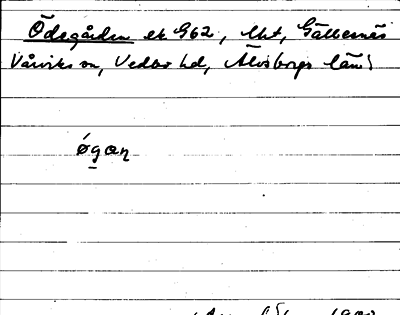 Ödegården ek 962, lht, Gällesnäs
Vårviks sn, Vedbo hd, Älvsborgs län
ógan